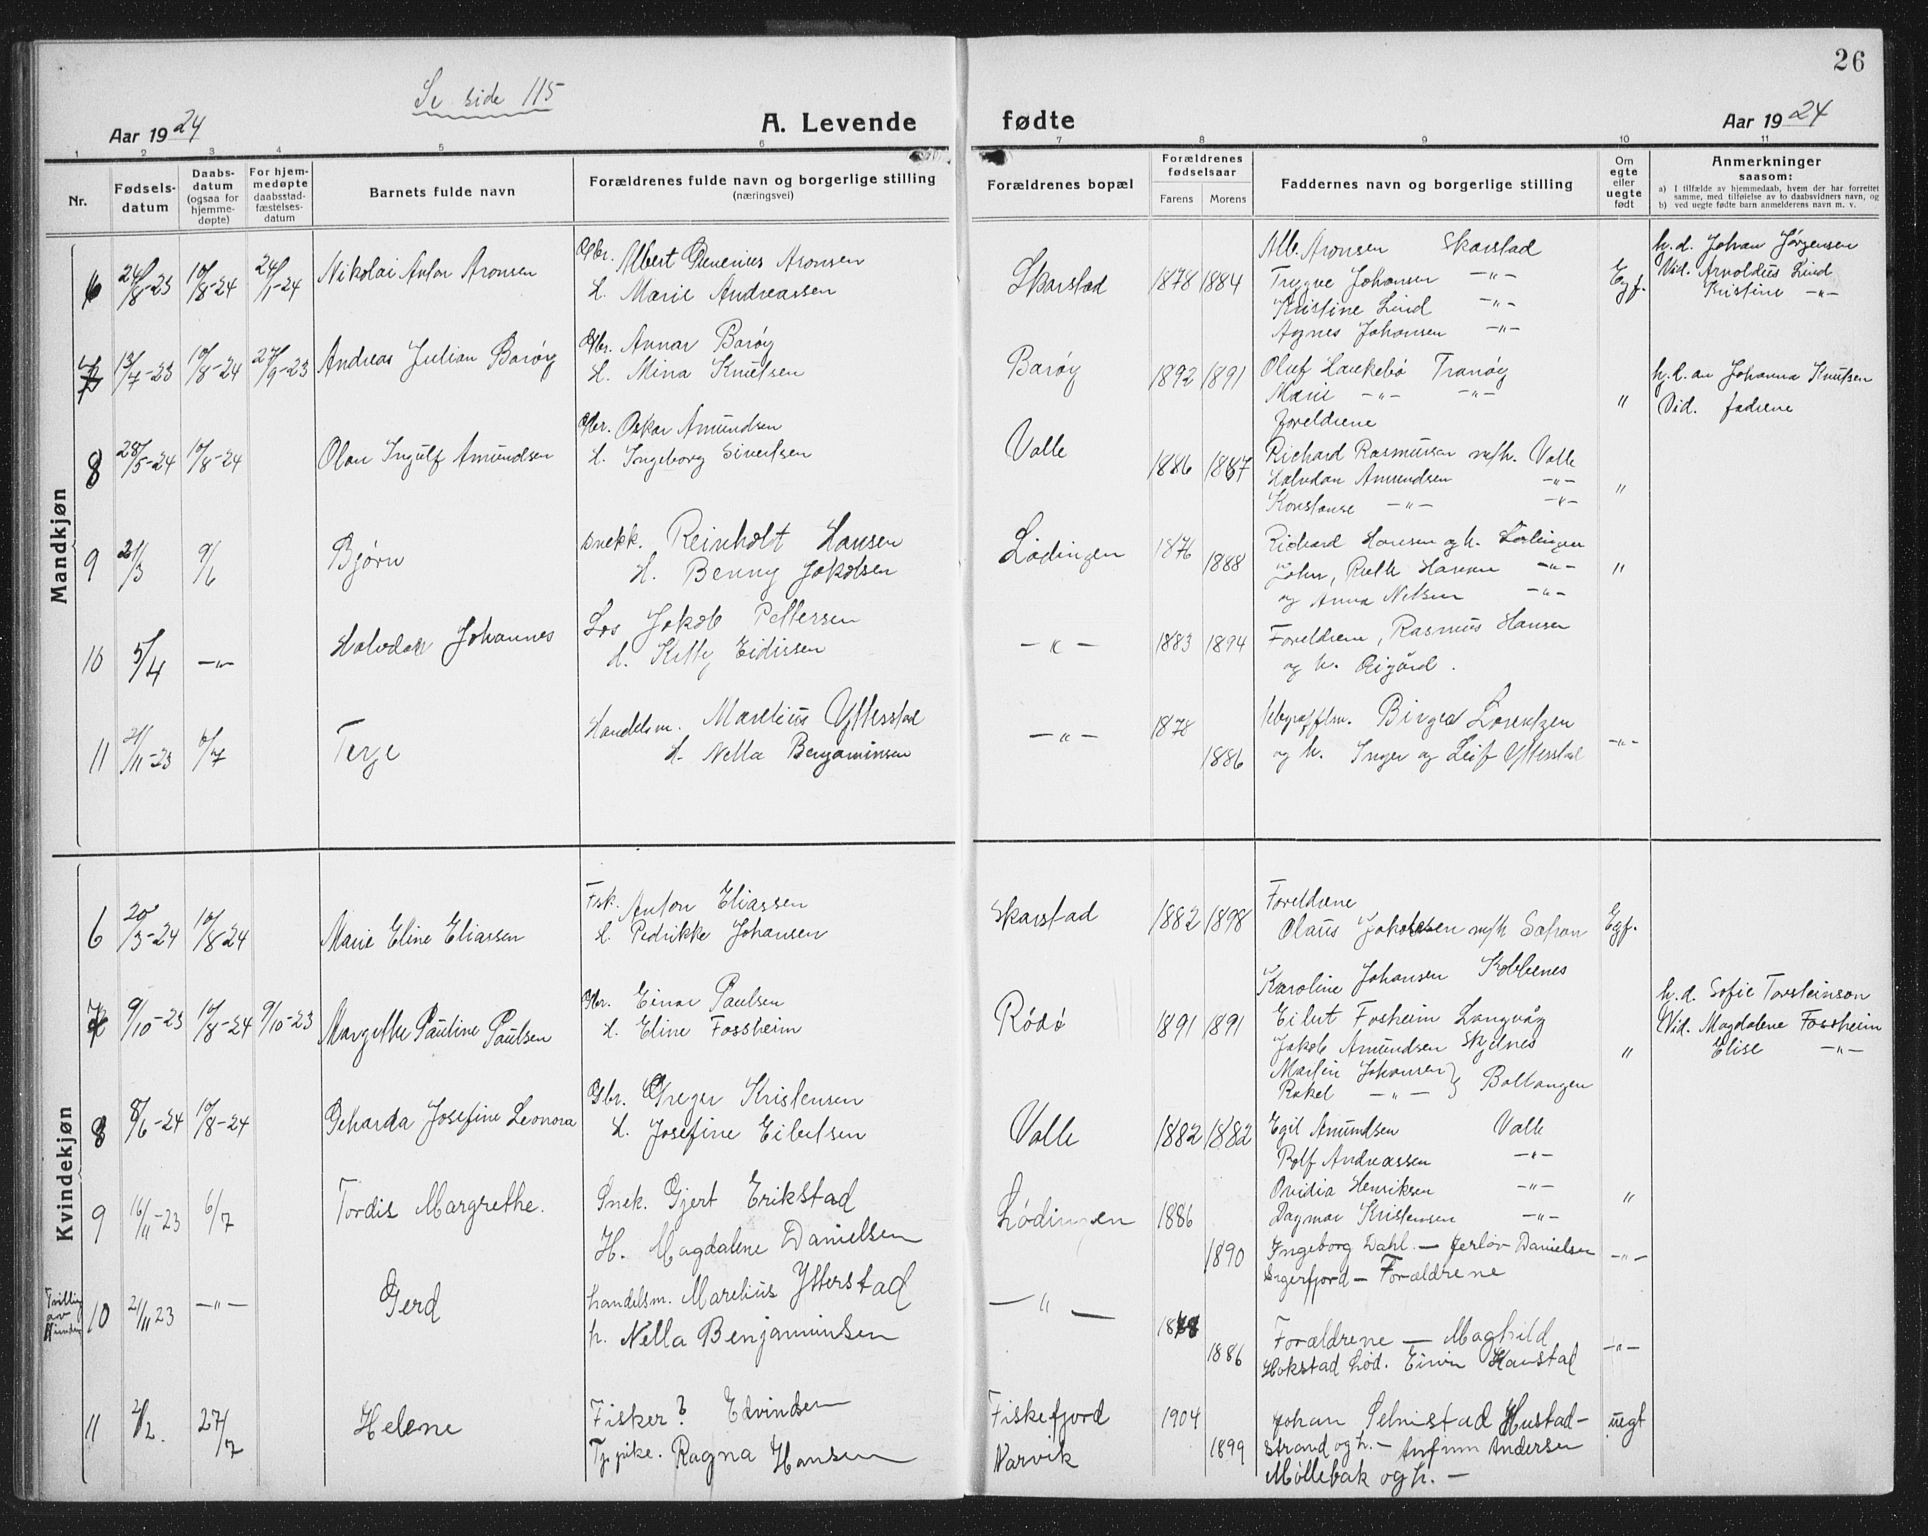 26
Se side 115
Aar 1924
A. Levende fødte
Aar 1924
1 2 3 4 5 6 7 8 9 10 11
Nr.
Fødsels-datum
Daabs-datum (ogsaa for hjemme-døpte)
For hjem-medøpte daabsstad-fæstelses-datum
Barnets fulde navn
Forældrenes fulde navn og borgerlige stilling (næringsvei)
Forældrenes bopæl
Forældrenes fødselsaar
Farens Morens
Faddernes navn og borgerlige stilling
Om egte eller uegte født
Anmerkninger saasom:
a) I tilfælde av hjemmedaab, hvem der har forrettet samme, med tilføielse av to daabsvidners navn, og
b) ved uegte fødte barn anmelderens navn m. v.
Mandkjøn
6 24/8-23 10/8-24 24/1-24 Nikolai Anton Aronsen
Gbr. Albert Aronsen
H. Marie Andreassen
Skarstad 1878 1884
Alb. Aronsen Skarstad
Trygve Johansen -"-
Kristine Lind -"-
Agnes Johansen -"-
Egf.
h.d. Johan Jørgensen
Vid. Arnoldus Lind
Kristine -"-
7 13/7-23 10/8-24 27/9-23 Andreas Julian Barøy
Gbr. Annar Barøy
H. Mina Knutsen
Barøy 1892 1891
Oluf Haukebø Tranøy
Marie -"- -"-
Foreldrene
"
h.d. av Johanna Knutsen
Vid. fadrene
8 28/5-24 10/8-24 Olav Ingulf Amundsen
Gbr. Oskar Amundsen
H. Ingeborg Sivertsen
Valle 1886 1887
Richard Rasmussen m/h. Valle
Halvdan Amundsen -"-
Konstanse -"- -"-
"
9 21/3 9/6 Bjørn
Snekk. Reinholdt Hansen
H. Benny Jakobsen
Lødingen 1876 1888
Richard Hansen og h. Lødingen
John, Ruth Hansen -"-
og Anna Nilsen -"-
"
10 5/4 -"- Halvdan Johannes
Los Jakob Pettersen
H. Kitty Eidissen
-"- 1883 1894
Foreldrene, Rasmus Hansen
og h. Rigård.
11 21/11-23 6/7 Terje
Handelsm. Marelius Ytterstad
H. Nella Benjaminsen
-"- 1878 1886
telegraffm. Birger Lorentzen
og h. Inger og Leif Ytterstad
-"-
Kvindekjøn
6 20/3-24 10/8-24 Marie Eline Eliassen
Fisk. Anton Eliassen
H. Pedrikke Johansen
Skarstad 1882 1898
Foreldrene
Olaus Jakobsen m/h
Egf.
7 9/10-23 10/8-24 9/10-23 Margethe Pauline Paulsen
Gbr. Einar Paulsen
H. Eline Fossheim
Rødø 1891 1891
Karoline Johansen Kobbenes
Eilert Fosheim Langvåg
Jakob Amundsen Skjelnes
Martin Johansen } Ballangen
Rakel -"-
"
h.d. Sofie Torsteinson
Vid. Magdalene Fossheim
Elise -"-
8 8/6-24 10/8-24 Geharda Josefine Leonora
Gbr. Greger Kristensen
H. Josefine Eilertsen
Valle 1882 1882
Egil Amundsen Valle
Rolf Andreassen -"-
Ovidia Henriksen -"-
Dagmar Kristensen -"-
"
9 16/11-23 6/7 Tordis Margrethe.
Snek. Gjert Erikstad
H. Magdalene Danielsen
Lødingen 1886 1890
Ingeborg Dahl. - Jerlov Danielsen
Sigerfjord - Forældrene
-"-
Tvilling av
10 21/11 23 -"- Gerd
handelsm. Marelius Ytterstad
h. Nella Benjaminsen
-"- 1878 1886
Forældrene - Maghild
Hokstad Lød. Einin Hanstad
-"-
11 2/2. 27/7 Helene
Fisker ? Edvindsen
Tj. pike. Ragna Hansen
Fiskefjord
Narvik
1904 1899
Johan Selnistad Hustad-
strand og h. - Arfinn Andersen
Møllebak og h. -
uegt